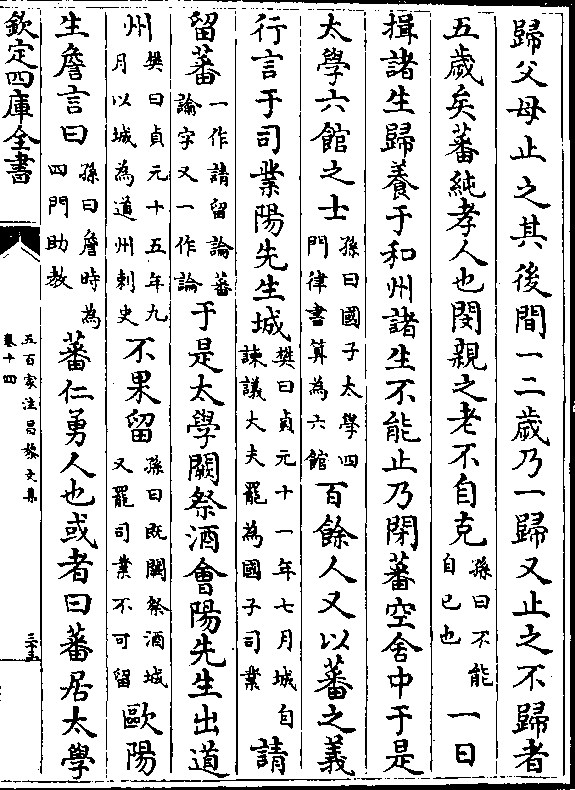 歸父母止之其後間一二歲乃一歸又止之不歸者
五歲矣蕃純孝人也閔親之老不自克孫曰不能自已也一日
揖諸生歸養于和州諸生不能止乃閉蕃空舍中于是
太學六館之士孫曰國子太學四門律書算為六館百餘人又以蕃之義
行言于司業陽先生城樊曰貞元十一年七月城自諫議大夫罷為國子司業請
留蕃一作請留論蕃論字又一作諭于是太學闕祭酒會陽先生出道
州樊曰貞元十五年九月以城為道州刺史不果留孫曰既闕祭酒城又罷司業不可留歐陽
生詹言曰孫曰詹時為四門助教蕃仁勇人也或者曰蕃居太學
欽定四庫全書
五百家注昌黎文集
卷十四
三十五